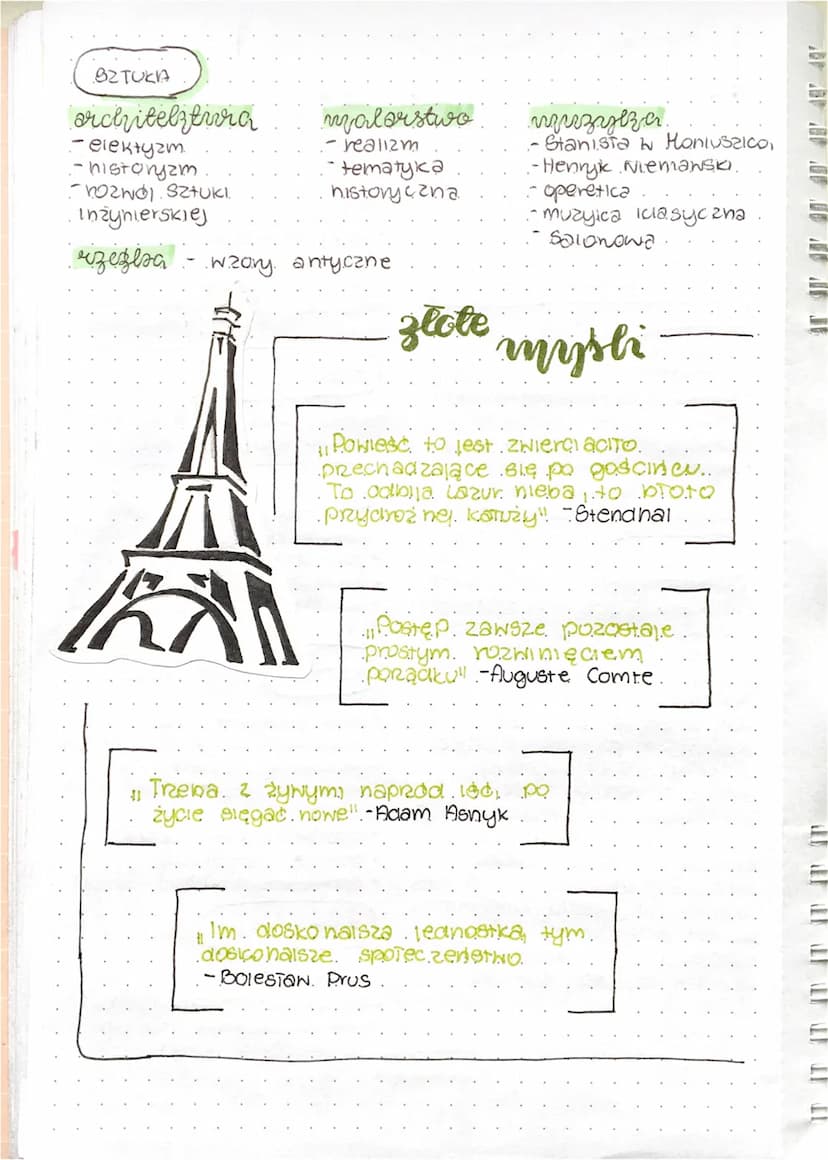 SZTUKA
architektura
- elektyzm
- historyzm
- rozwój sztuki
inżynierskiej
malarstwo
- realizm
- tematyka
historyczna
muzyka
- Stanisław Moniuszko,
- Henryk Niemawski
- operetka
- muzyka klasyczna
- salonowa
rzeźba - wzory antyczne
złote
myśli
„Powieść to jest zwierciadło
przechadzające się po gościńcu.
To odbija lazur nieba, to błoto
przydrożnej kałuży" - Stendhal
„Postęp zawsze pozostaje
prostym rozwinięciem
porządku" - Auguste Comte
„Trzeba z żywymi naprzód iść, po
życie sięgać nowe" - Adam Asnyk
„Im doskonalsza jednostka, tym
doskonalsze społeczeństwo
- Bolesław Prus